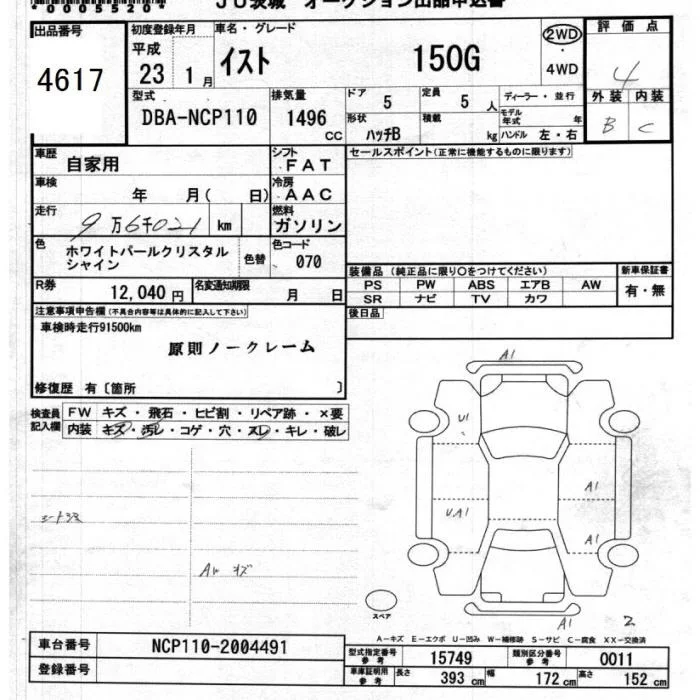 *0005520*
JU茨城 オークション出品申込書
出品番号 初度登録年月 車名・グレード 評価点
4617 平成 23 1月 イスト 150G 2WD・4WD 4
型式 排気量 ドア 5 定員 5人 ディーラー・並行 外装 内装
DBA-NCP110 1496cc 形状 ハッチB 積載 kg モデル年式 年 ハンドル 左・右 B C
車歴 自家用 シフト FAT セールスポイント(正常に機能するものに限ります)
車検 年 月( 日) 冷房 AAC
走行 9万6千021 km 燃料 ガソリン
色 ホワイトパールクリスタルシャイン 色替 色コード 070
装備品(純正品に限り○をつけてください) 新車保証書
R券 12,040円 名変通知期限 月 日 PS PW ABS エアB AW 有・無
SR ナビ TV カワ
注意事項申告欄(不具合内容等は具体的に記入して下さい) 後日品
車検時走行91500km
原則ノークレーム
修復歴 有〔箇所 〕
検査員記入欄 FW キズ・飛石・ヒビ割・リペア跡・×要
内装 キズ・汚レ・コゲ・穴・スレ・キレ・破レ
A1
U1
A1
U.A1
A1
シートヨゴレ
AW キズ
スペア
A1 2
A-キズ E-エクボ U-凹み W-補修跡 S-サビ C-腐食 XX-交換済
車台番号 NCP110-2004491 型式指定番号 参考 15749 類別区分番号 参考 0011
登録番号 車庫証明用 参考 長さ 393cm 幅 172cm 高さ 152cm